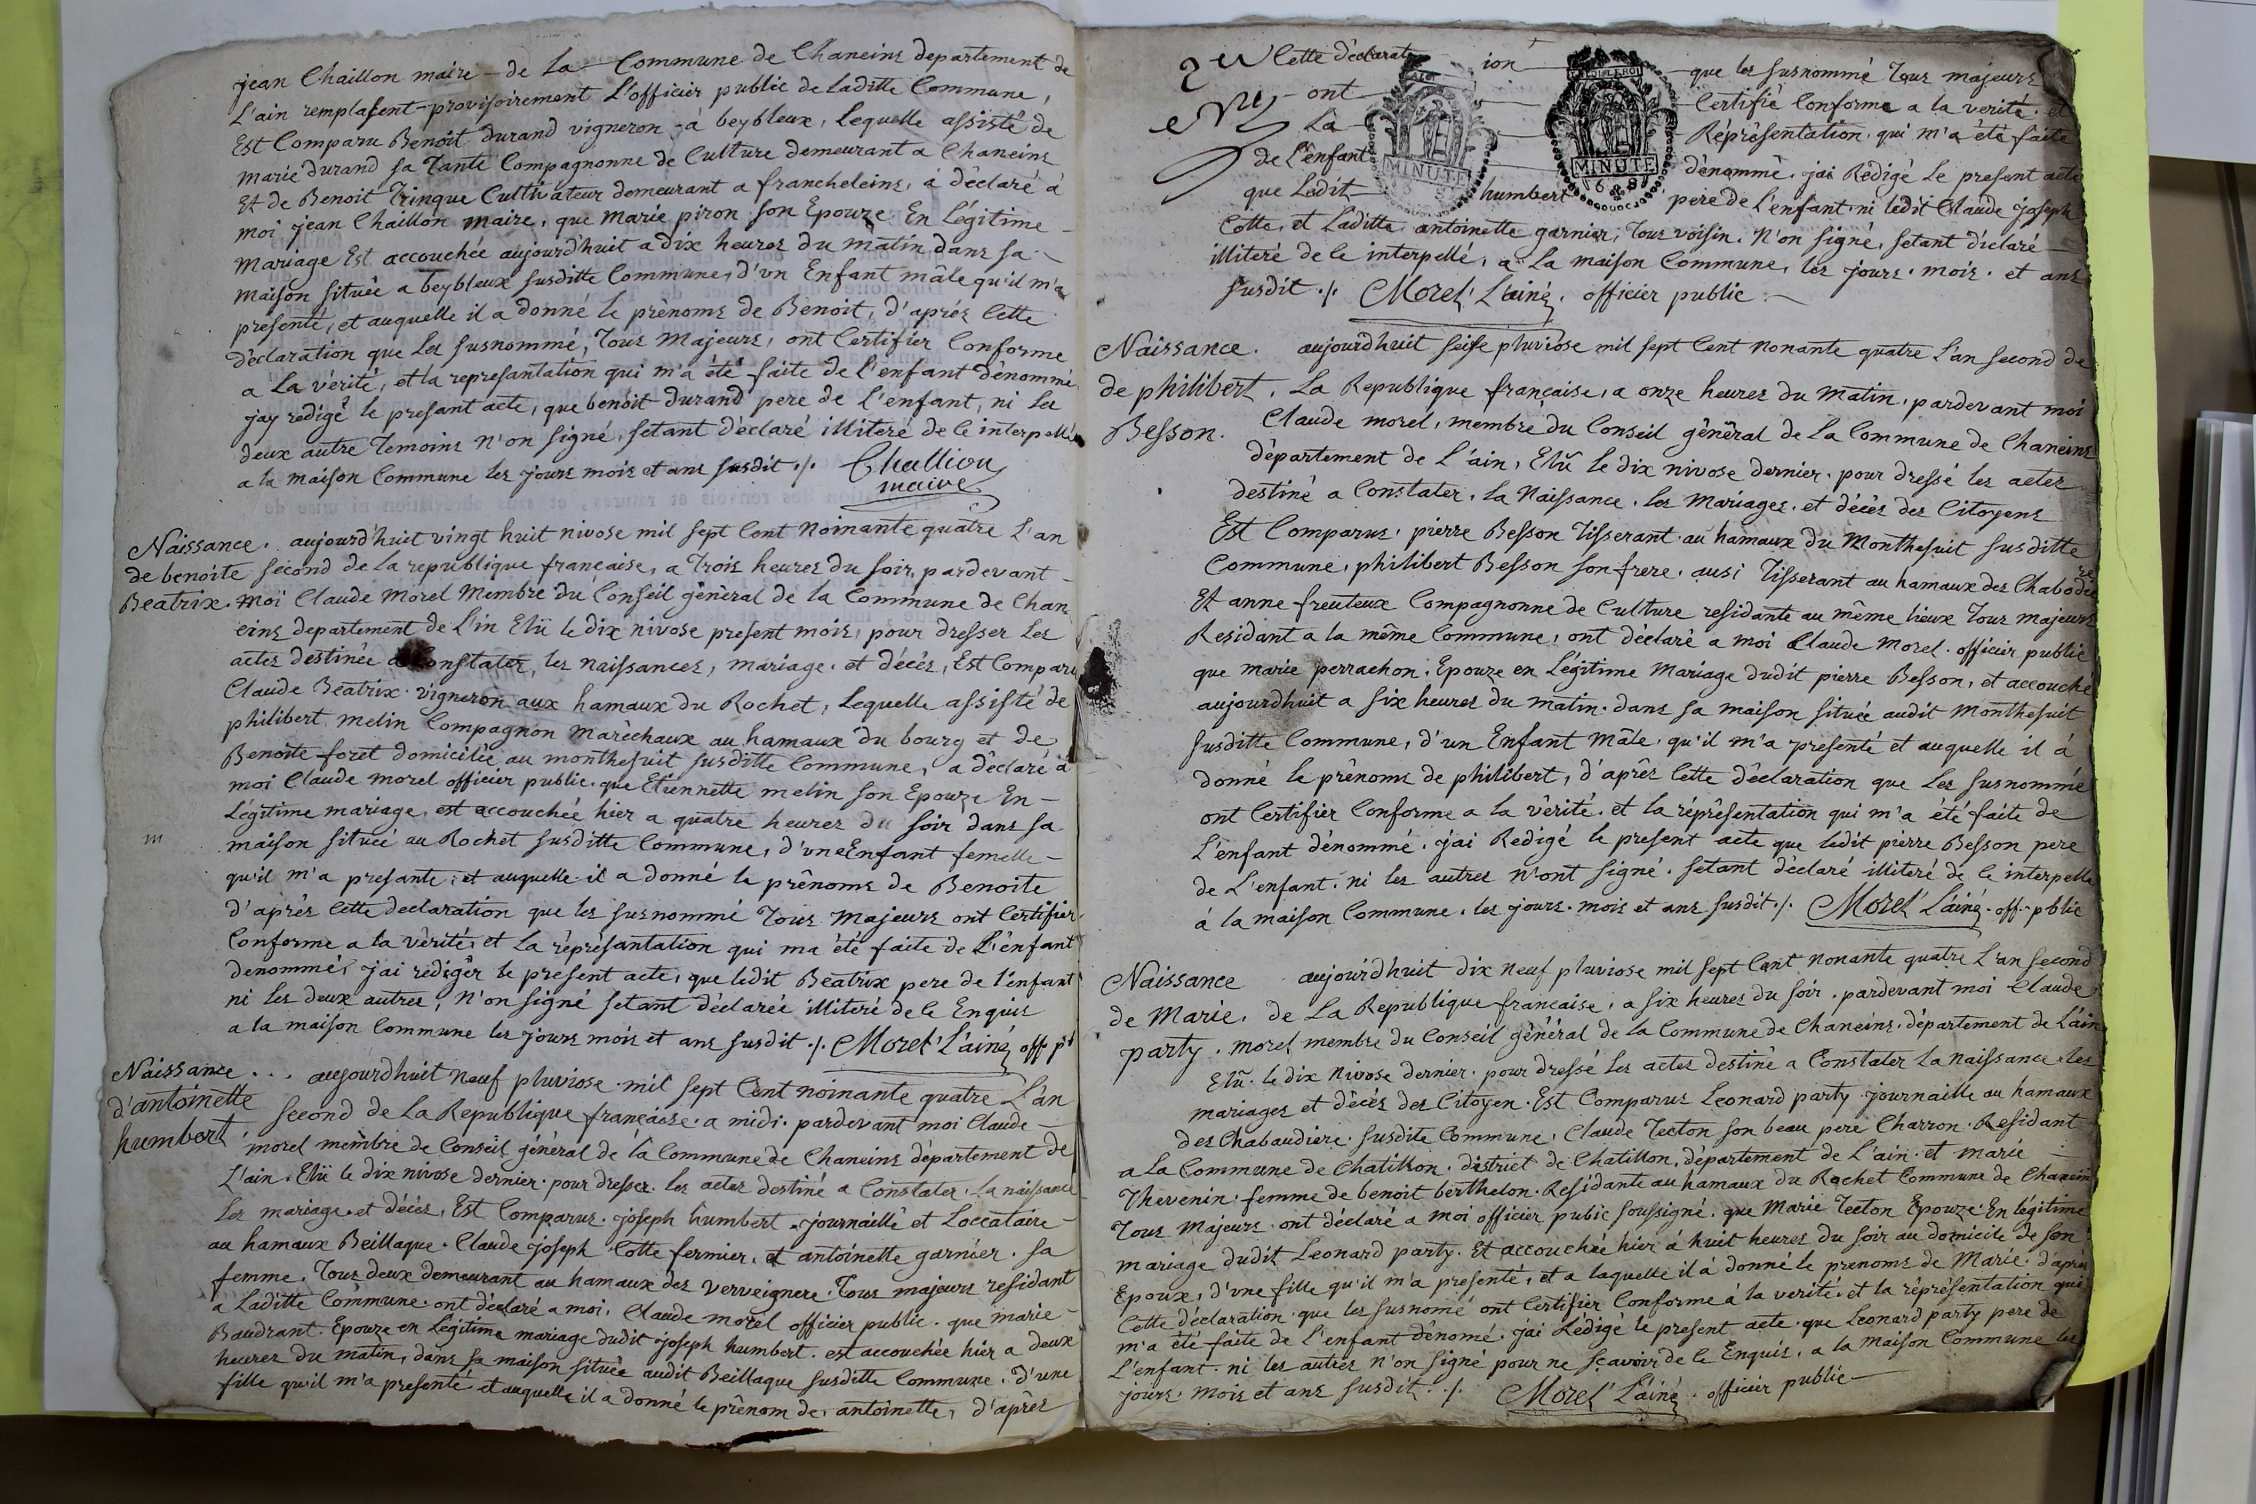 jean Chaillon maire de La Commune de Chaneins departement de
L'ain remplasent provisoirement L'officier public de laditte Commune,
Est Comparu Benoit durand vigneron à beybleux, Lequelle assisté de
marie durand sa Tante Compagnonne de Culture demeurant a Chaneins
Et de Benoit Trinque Cultivateur demeurant a francheleins, à déclaré à
moi jean Chaillon maire, que marie piron son Epouze En Légitime
mariage Est accouchée aujourd'huit a dix heures du matin dans sa
maison située a beybleux susditte Commune, d'vn Enfant mâle qu'il m'a
présenté, et auquelle il a donné le prénoms de Benoit, d'après Cette
déclaration que Les susnommé, Tous Majeurs, ont Certifier Conforme
a La vérité, et la représantation qui m'a été faite de L'enfant dénommé,
jay redigé le present acte, que benoit durand pere de L'enfant, ni Les
deux autre Temoins n'on signé, setant déclaré illiteré de ce interpellé
a la maison Commune les jours mois et ans susdit ./. Challion
maire
Naissance. aujourd'huit vingt huit nivose mil sept Cent Noinante quatre L'an
de benoite second de la republique française, a Trois heures du soir, pardevant
Beatrix. moi Claude Morel Membre du Conseil général de la Commune de Chan
eins departement de L'in Elü le dix nivose present mois, pour dresser Les
actes destinée a Constater, les naissances, mariage. et décés, Est Comparu
Claude Beatrix vigneron aux hamaux du Rochet, Lequelle assisté de
philibert melin Compagnon maréchaux au hamaux du bourg et de
Benoite foret domiciliée au monthesuit susditte Commune, a déclaré à
moi Claude morel officier public. que Etiennette melin son Epouze En
Légitime mariage, est accouchée hier a quatre heures du soir dans sa
maison située au Rochet susditte Commune, d'vne Enfant femelle
qu'il m'a presante, et auquelle il a donné le prénoms de Benoite
d'après Cette declaration que les susnommé Tous Majeurs ont Certifier
Conforme a la vérité, et La représantation qui ma été faite de L'énfant
denommé, jai rediger le present acte, que ledit Beatrix pere de l'énfant
ni les deux autres, N'on signé setant déclarée illiteré de le Enquis
a la maison Commune les jours mois et ans susdit ./. Morel L'ainé off. pt
Naissance... aujourdhuit Neuf pluviose mil sept Cent noinante quatre L'an
d'antoinette second de La Republique française. a midi. pardevant moi Claude
humbert. morel membre de Conseil général de la Commune de Chaneins département de
L'ain. Elü le dix nivose dernier. pour dresser. les actes destiné a Constater. la naissance
Les mariage. et décés, Est Comparus. joseph humbert journaillé et Loccataire
au hamaux Beillaque. Claude joseph Cotte fermier, et antoinette garnier. sa
femme. Tous deux demeurant au hamaux des verveignere. Tous majeurs residant
a Laditte Commune. ont déclaré a moi, Claude morel officier public. que marie
Baudrant. Epouze en Légitime mariage dudit joseph humbert. est accouchée hier a deux
heures du matin, dans sa maison située audit Beillaque susditte Commune. D'une
fille qu'il m'a presenté et auquelle il a donné le prénom de antoinette, d'après
Cette déclarat ion que les susnommé Tous majeurs
ont Certifié Conforme a la verité. et
La Réprésentation qui m'a été faite
de L'énfant dénommé. jai Redigé Le present acte
MINUTE
MINUTE
que Ledit humbert père de L'enfant ni ledit Claude joseph
Cotte, et Laditte antoinette garnier, Tous voisin. N'on signé, setant déclaré
illiteré de le interpellé, a La maison Commune, les jours. mois. et ans
susdit ./. Morel L'ainé. officier public
Naissance. aujourdhuit seise pluviose mil sept Cent nonante quatre L'an second de
de philibert. La Republique française, a onze heures du matin, pardevant moi
Besson. Claude morel, membre du Conseil général de La Commune de Chaneins
département de L'ain, Elü le dix nivose dernier. pour dressé les actes
destiné a Constater. la Naissance. les Mariages. et décés des Citoyens
Est Comparus, pierre Besson Tisserant au hamaux du Monthesuit susditte
Commune, philibert Besson son frere, ausi Tisserant au hamaux des Chabodie re
Et anne freuteux Compagnonne de Culture residante au même lieux Tous majeurs
Residant a la même Commune, ont déclaré a moi Claude Morel. officier public
que marie perrachon. Epouze en Légitime Mariage dudit pierre Besson, et accouché
aujourdhuit a six heures du matin. dans sa maison située audit Monthesuit
susditte Commune, d'un Enfant Mâle, qu'il m'a presenté et auquelle il à
donné le prénoms de philibert, d'après Cette déclaration que Les susnommé
ont Certifier Conforme a la vérité. et la réprésentation qui m'a été faite de
L'énfant dénommé. jai Redigé le present acte que ledit pierre Besson pere
de L'enfant. ni les autres n'ont signé. setant déclaré illiteré de le interpellé
à la maison Commune. les jours. mois et ans susdit ./. Morel L'ainé. off. pblic
Naissance aujourdhuit dix neuf pluviose mil sept Cent nonante quatre L'an second
de Marie. de La Republique francaise, a six heures du soir. pardevant moi Claude
party. morel membre du Conseil général de la Commune de Chaneins. département de L'ain
Elü. le dix Nivose dernier. pour dressé Les actes destiné a Constater La Naissance. les
mariages et décés des Citoyen. Est Comparus Leonard party journaille au hamaux
des Chabaudiere. susdite Commune, Claude Tecton son beau pere Charron. Residant
a La Commune de Chatillon. district de Chatillon, département de L'ain. et marie
Thevenin. femme de benoit berthelon. Residante au hamaux du Rochet Commune de Chaneins
Tous Majeurs ont déclaré a moi officier pubic soussigné. que Marie Tecton Epouze En légitime
mariage dudit Leonard party. Et accouchée hier à huit heures du soir au domicile de son
Epoux, d'vne fille qu'il m'a presenté, et a laquelle il à donné le prenoms de Marie. d'après
Cette déclaration que les susnomé ont Certifier Conforme à la verité. et la réprésentation qui
m'a été faite de L'enfant dénomé. jai Redigé le present acte. que Leonard party pere de
L'enfant ni les autres n'on signé pour ne sçavoir de le Enquis, a la maison Commune les
jours, mois et ans susdit ./. Morel L'ainé. officier public